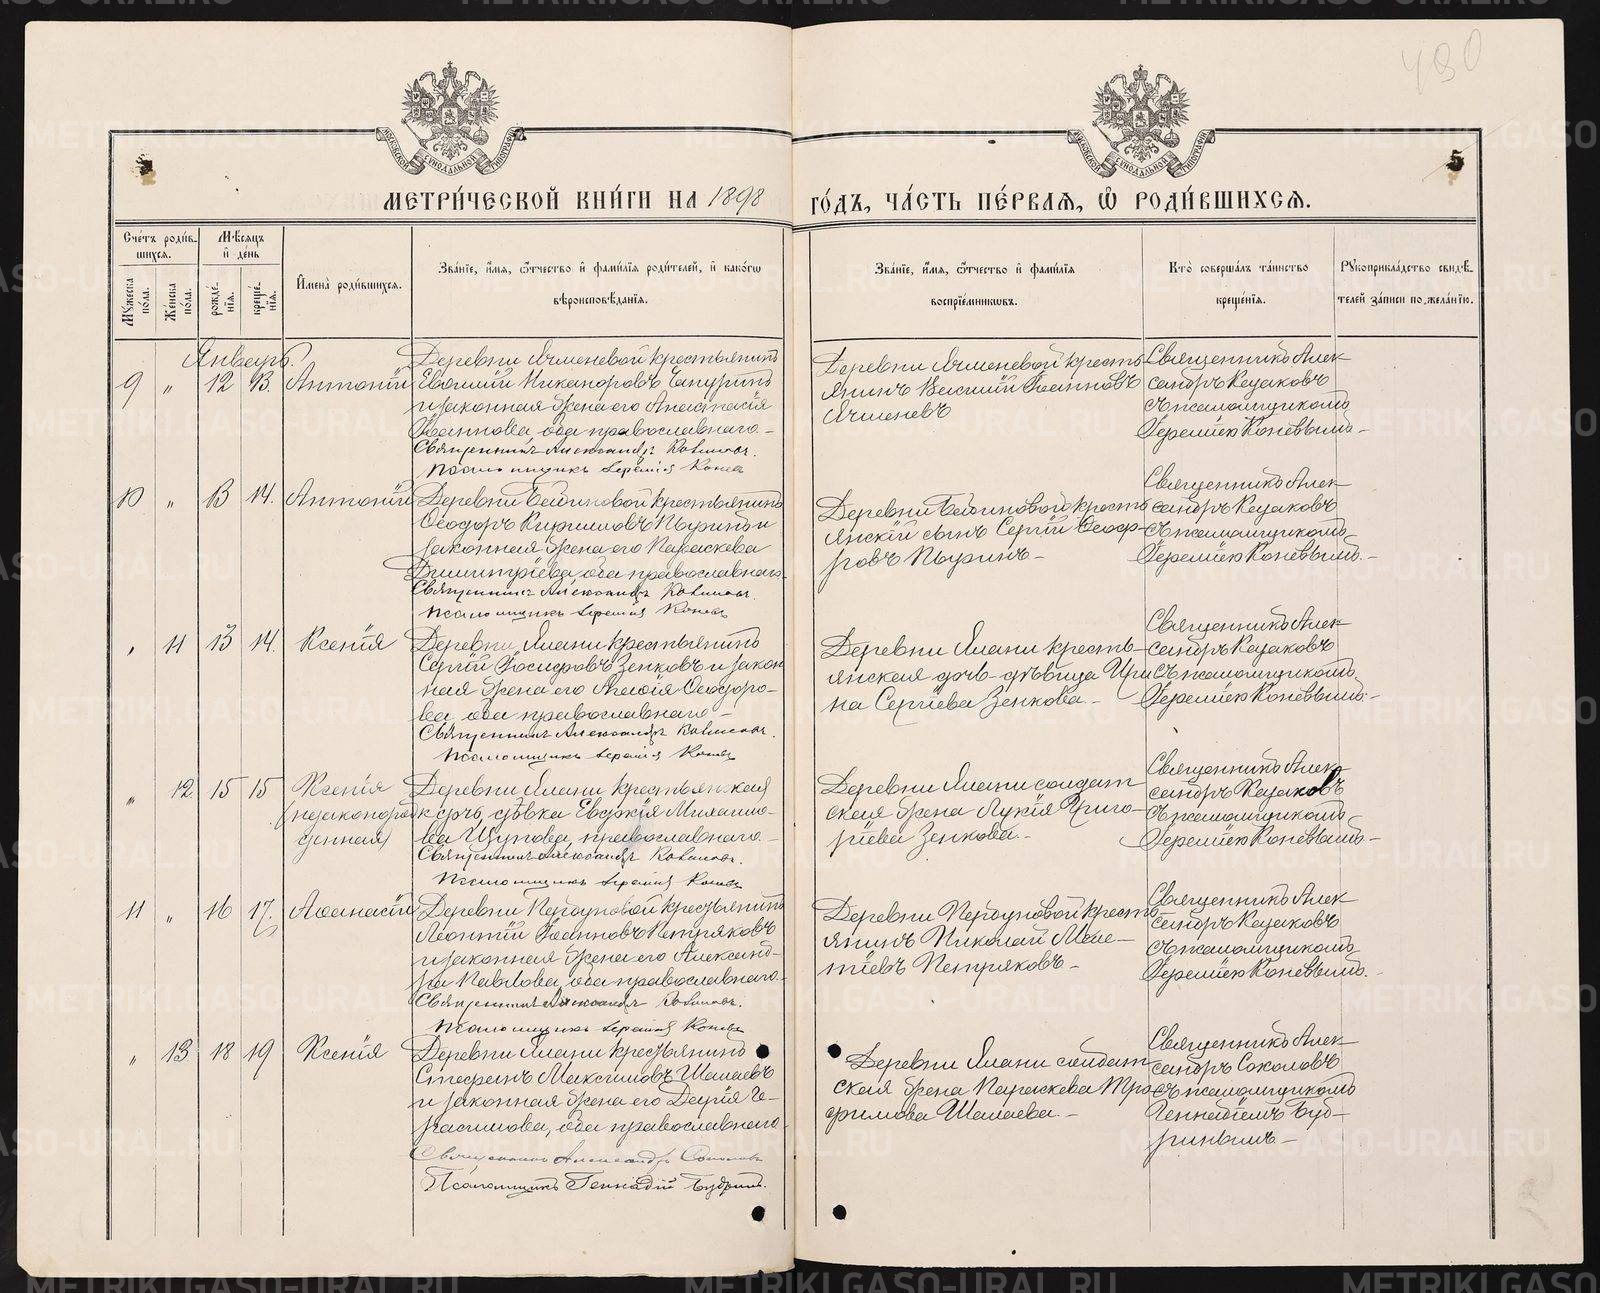 490
5
МЕТРИЧЕСКОЙ КНИГИ НА 1898 ГОДЪ, ЧАСТЬ ПЕРВАЯ, Ѡ РОДИВШИХСЯ.
Счетъ родив-
шихся.
Мужеска пола.
Женска пола.
Мѣсяцъ и день
рожде-
нія.
креще-
нія.
Имена родившихся.
Званіе, имя, отчество и фамилія родителей, и какого
вѣроисповѣданія.
Званіе, имя, отчество и фамилія
воспріемниковъ.
Кто совершалъ таинство
крещенія.
Рукоприкладство свидѣ-
телей записи по желанію.
Январь.
9 " 12 13. Антоній
Деревни Ячменевой крестьянинъ
Евѳимій Никаноровъ Чапуринъ
и законная жена его Анастасія
Іоаннова, оба православнаго.-
Священникъ Александръ Казаковъ.
Псаломщикъ Іеремія Коневъ
Деревни Ячменевой кресть-
янинъ Василій Іоанновъ
Ячменевъ
Священникъ Алек-
сандръ Казаковъ
съ псаломщикомъ
Іереміею Коневымъ.-
10 " 13 14. Антоній
Деревни крестьянинъ
Ѳеодоръ Кирилловъ Пыринъ и
законная жена его Параскева
Димитріева, оба православнаго.
Священникъ Александръ Казаковъ.
Псаломщикъ Іеремія Коневъ
Деревни кресть-
янскій сынъ Сергій Ѳеодо-
ровъ Пыринъ.-
Священникъ Алек-
сандръ Казаковъ
съ псаломщикомъ
Іереміею Коневымъ.-
" 11 13 14. Ксенія
Деревни Ялани крестьянинъ
Сергій Іосифовъ Зенковъ и закон-
ная жена его Ѳеодоро-
ва, оба православнаго.-
Священникъ Александръ Казаковъ.
Псаломщикъ Іеремія Коневъ
Деревни Ялани кресть-
янская дочь-дѣвица Ири-
на Сергіева Зенкова.-
Священникъ Алек-
сандръ Казаковъ
съ псаломщикомъ
Іереміею Коневымъ.-
" 12. 15 15 Ксенія
(незаконорож-
денная)
Деревни Ялани крестьянская
дочь, дѣвка Евдокія
ва Щупова, православнаго.-
Священникъ Александръ Казаковъ.
Псаломщикъ Іеремія Коневъ
Деревни Ялани солдат-
ская жена Лукія Григо-
ріева Зенкова.-
Священникъ Алек-
сандръ Казаковъ
съ псаломщикомъ
Іереміею Коневымъ.-
11 " 16 17. Аѳанасій
Деревни крестьянинъ
Леонтій Іоанновъ Петряковъ
и законная жена его Александ-
ра Павлова, оба православнаго.
Священникъ Александръ Казаковъ.
Псаломщикъ Іеремія Коневъ
Деревни кресть-
янинъ Николай Меле-
тіевъ Петряковъ.-
Священникъ Алек-
сандръ Казаковъ
съ псаломщикомъ
Іереміею Коневымъ.-
" 13 18 19 Ксенія
Деревни Ялани крестьянинъ
Стефанъ Максимовъ Шалаевъ
и законная жена его Дарія Ге-
расимова, оба православнаго
Священникъ Александръ Соколовъ
Псаломщикъ Геннадій Будринъ.
Деревни Ялани солдат-
ская жена Параскева Тро-
фимова Шалаева.-
Священникъ Алек-
сандръ Соколовъ
съ псаломщикомъ
Геннадіемъ Буд-
ринымъ.-
METRIKI.GASO-URAL.RU